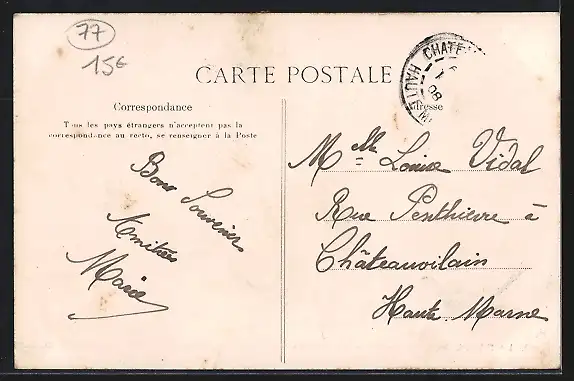 77
15€
CARTE POSTALE
Correspondance
Tous les pays étrangers n'acceptent pas la
correspondance au recto, se renseigner à la Poste
Bons Souvenirs
Amitiés
Marie
CHATE
HAUTE M
08
Adresse
Melle Louise Vidal
Rue Penthièvre à
Châteauvilain
Haute Marne